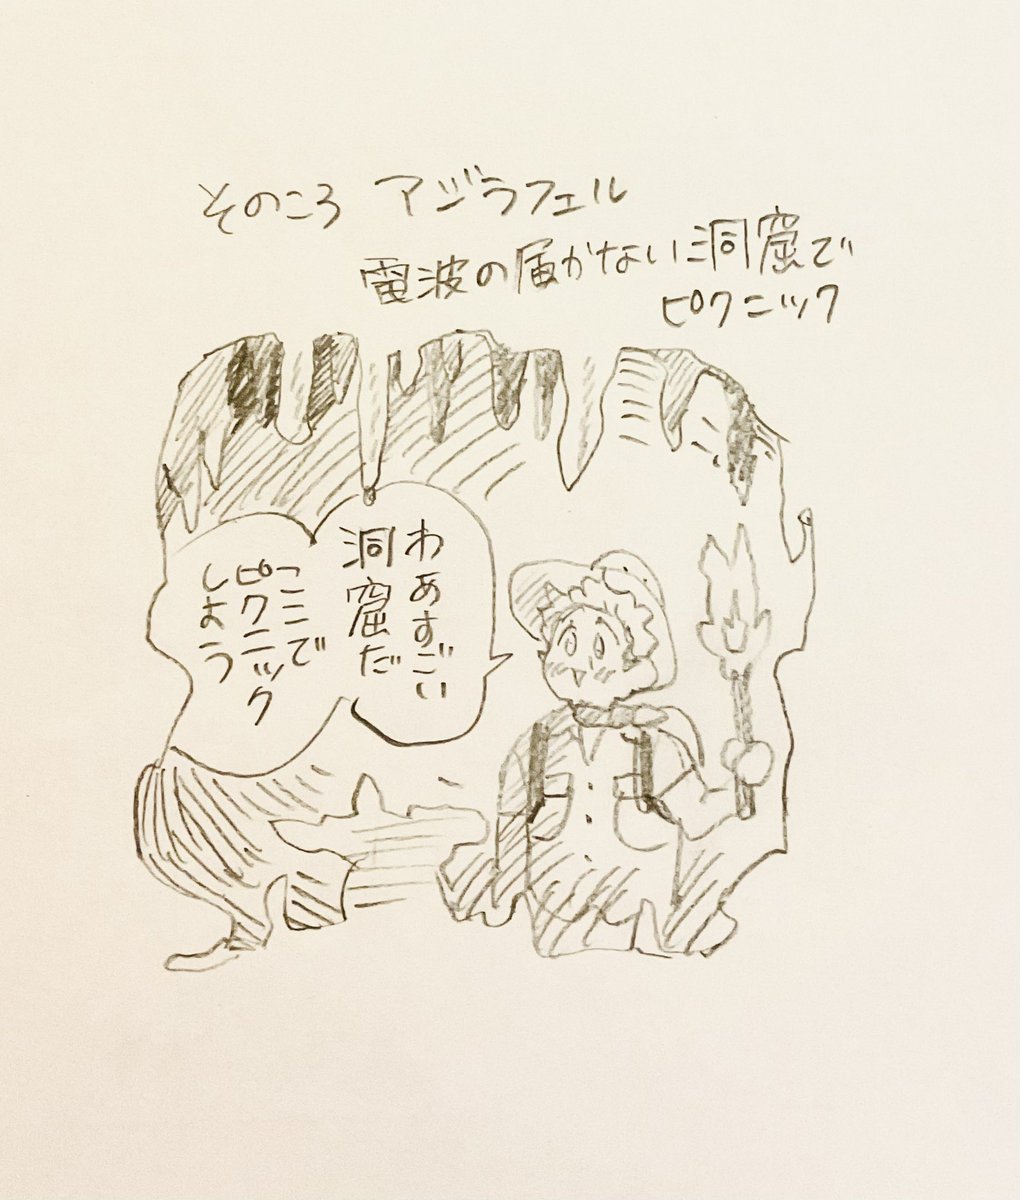 そのころ アジラフェル
電波の届かない洞窟で
ピクニック
わあすごい
洞窟だ
ここで
ピクニック
しよう